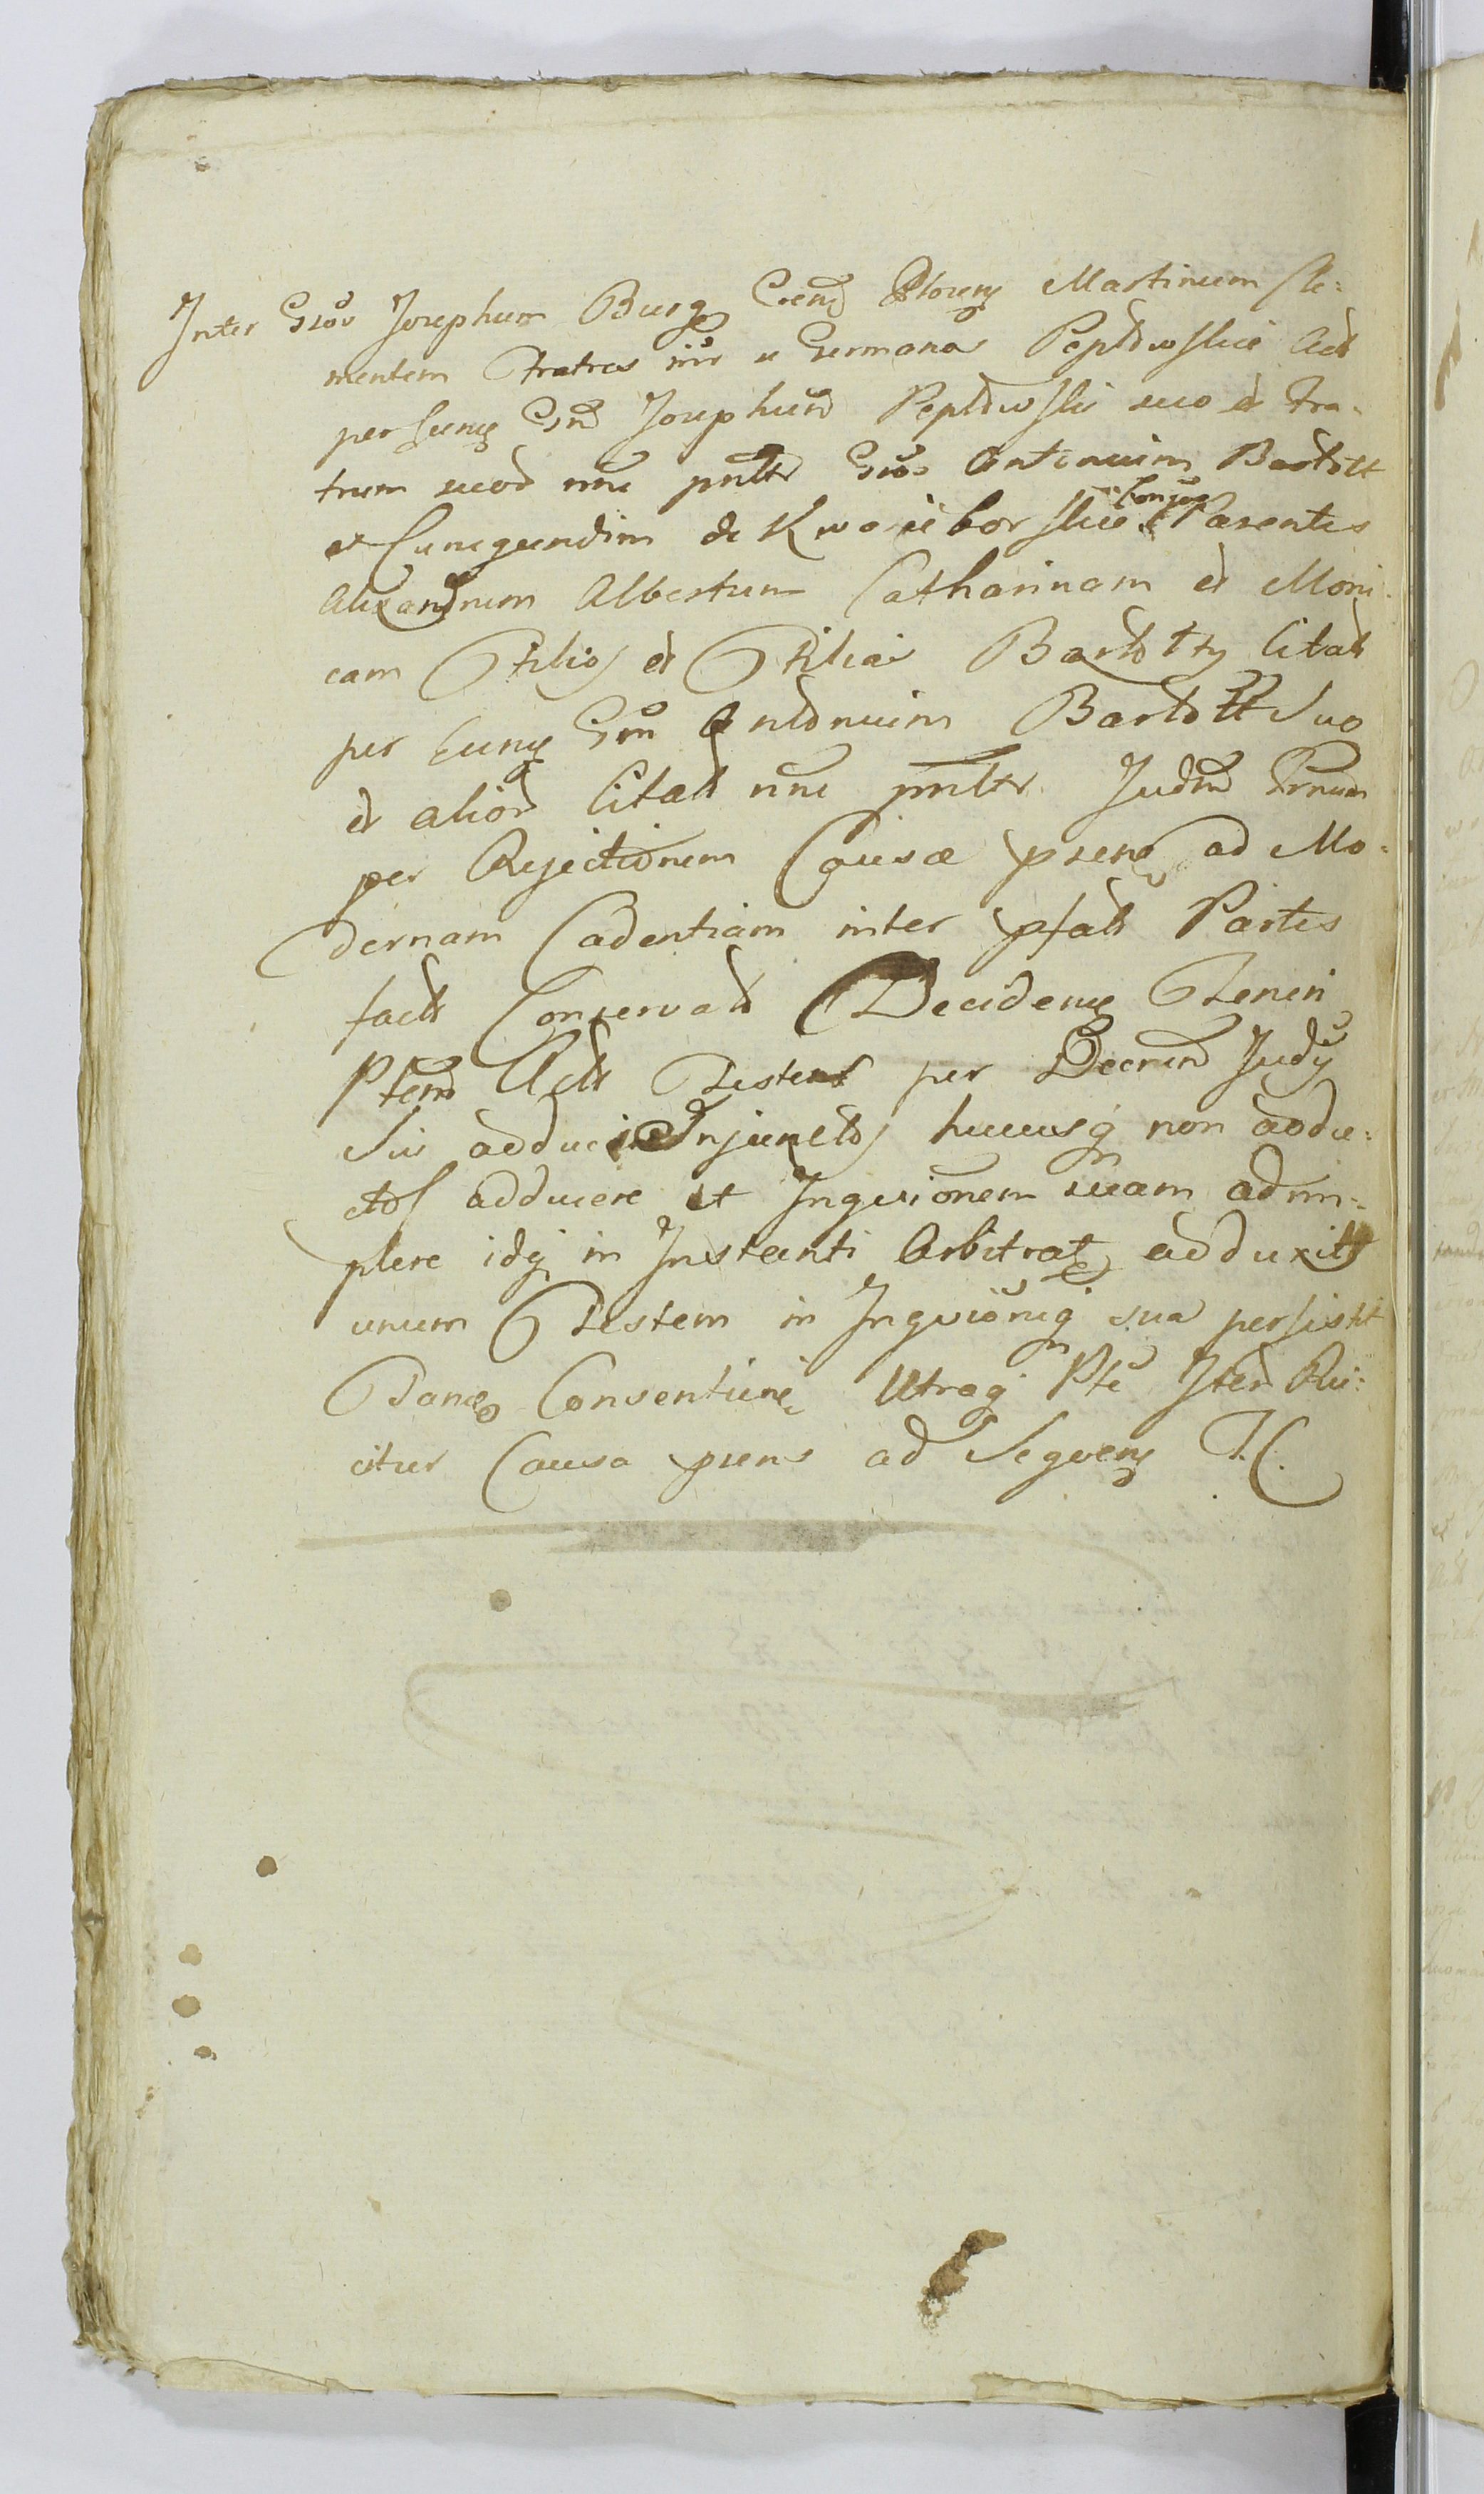 Inter Gsos Josephum Burg Crens Plocens Martinum Cle:
mentem Fratres inr se Germanos Peplowskie Act
per eunq Gsm Josephum Peplowski suo et Fra-
trum suor nne pntr Gsos Antonium Bartołt
et Cunegundim de Kwasieborskie Conjug Parentes
Alexandrum Albertum Catharinam et Moni-
cam Filios et Filias Bartołty Citat
per eunq Gsm Antonium Bartołt Suo
et alior Citat nne pntr. Judm Prnum
per Rejectionem Causæ psens ad Mo:
dernam Cadentiam inter psat Partes
fact Conservat Decidens Teneri
Ptem Act Testes per Decrm Judy
Sui adducere Injunctos hucusq non addu:
ctos adducere et Inqvisionem suam adim-
plere idq in Instanti Arbitrat adduxit
unum Testem in Inqvisioneq sua persistit
Conventione Utraq Pte Iter Rei:
citur Causa psens ad Seqvens T.C.